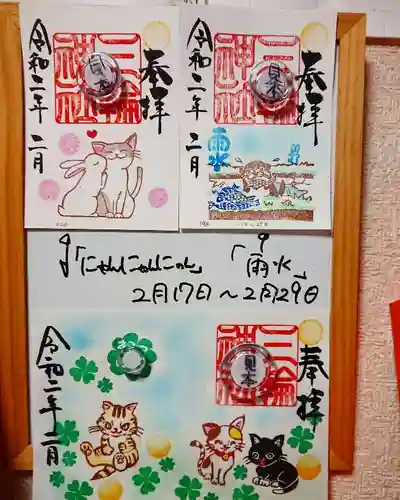 奉拝
三輪神社
見本
令和二年 二月
奉拝
三輪神社
見本
雨水
令和二年 二月
「にゃんにゃんにゃん」
「雨水」
2月17日〜2月29日
奉拝
三輪神社
見本
令和二年 二月